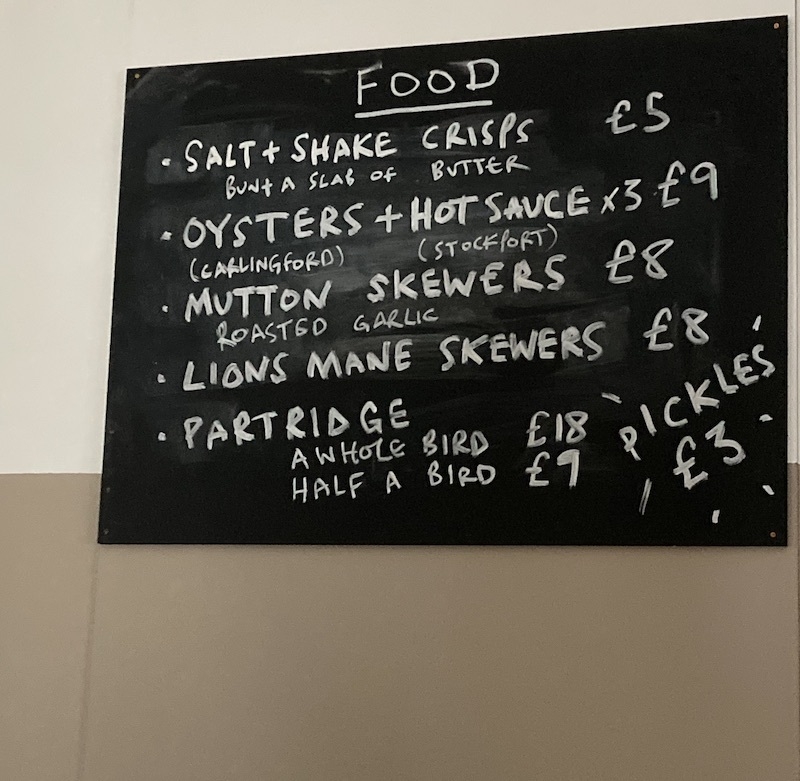 FOOD
• SALT + SHAKE CRISPS £5
BUN + A SLAB OF BUTTER
• OYSTERS + HOT SAUCE x3 £9
(CARLINGFORD) (STOCKPORT)
• MUTTON SKEWERS £8
ROASTED GARLIC
• LIONS MANE SKEWERS £8
• PARTRIDGE
A WHOLE BIRD £18
HALF A BIRD £9
PICKLES
£3